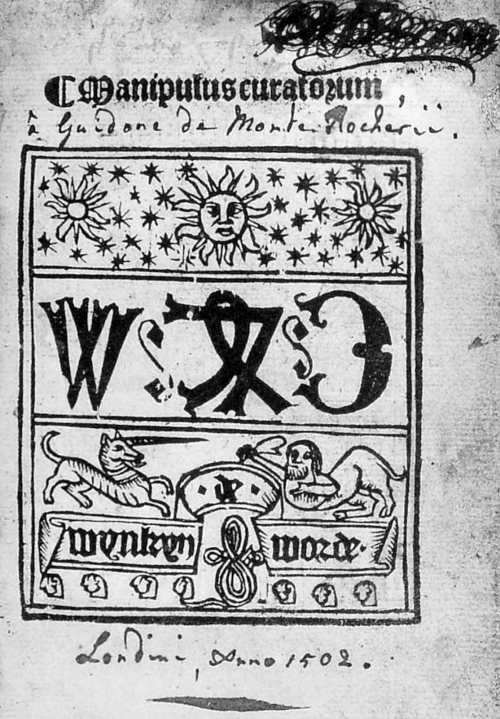 ⸿ Manipulus curatorum,
à Guidone de Monte Rocherii.
W C
de
wynkyn worde.
Londini, Anno 1502.